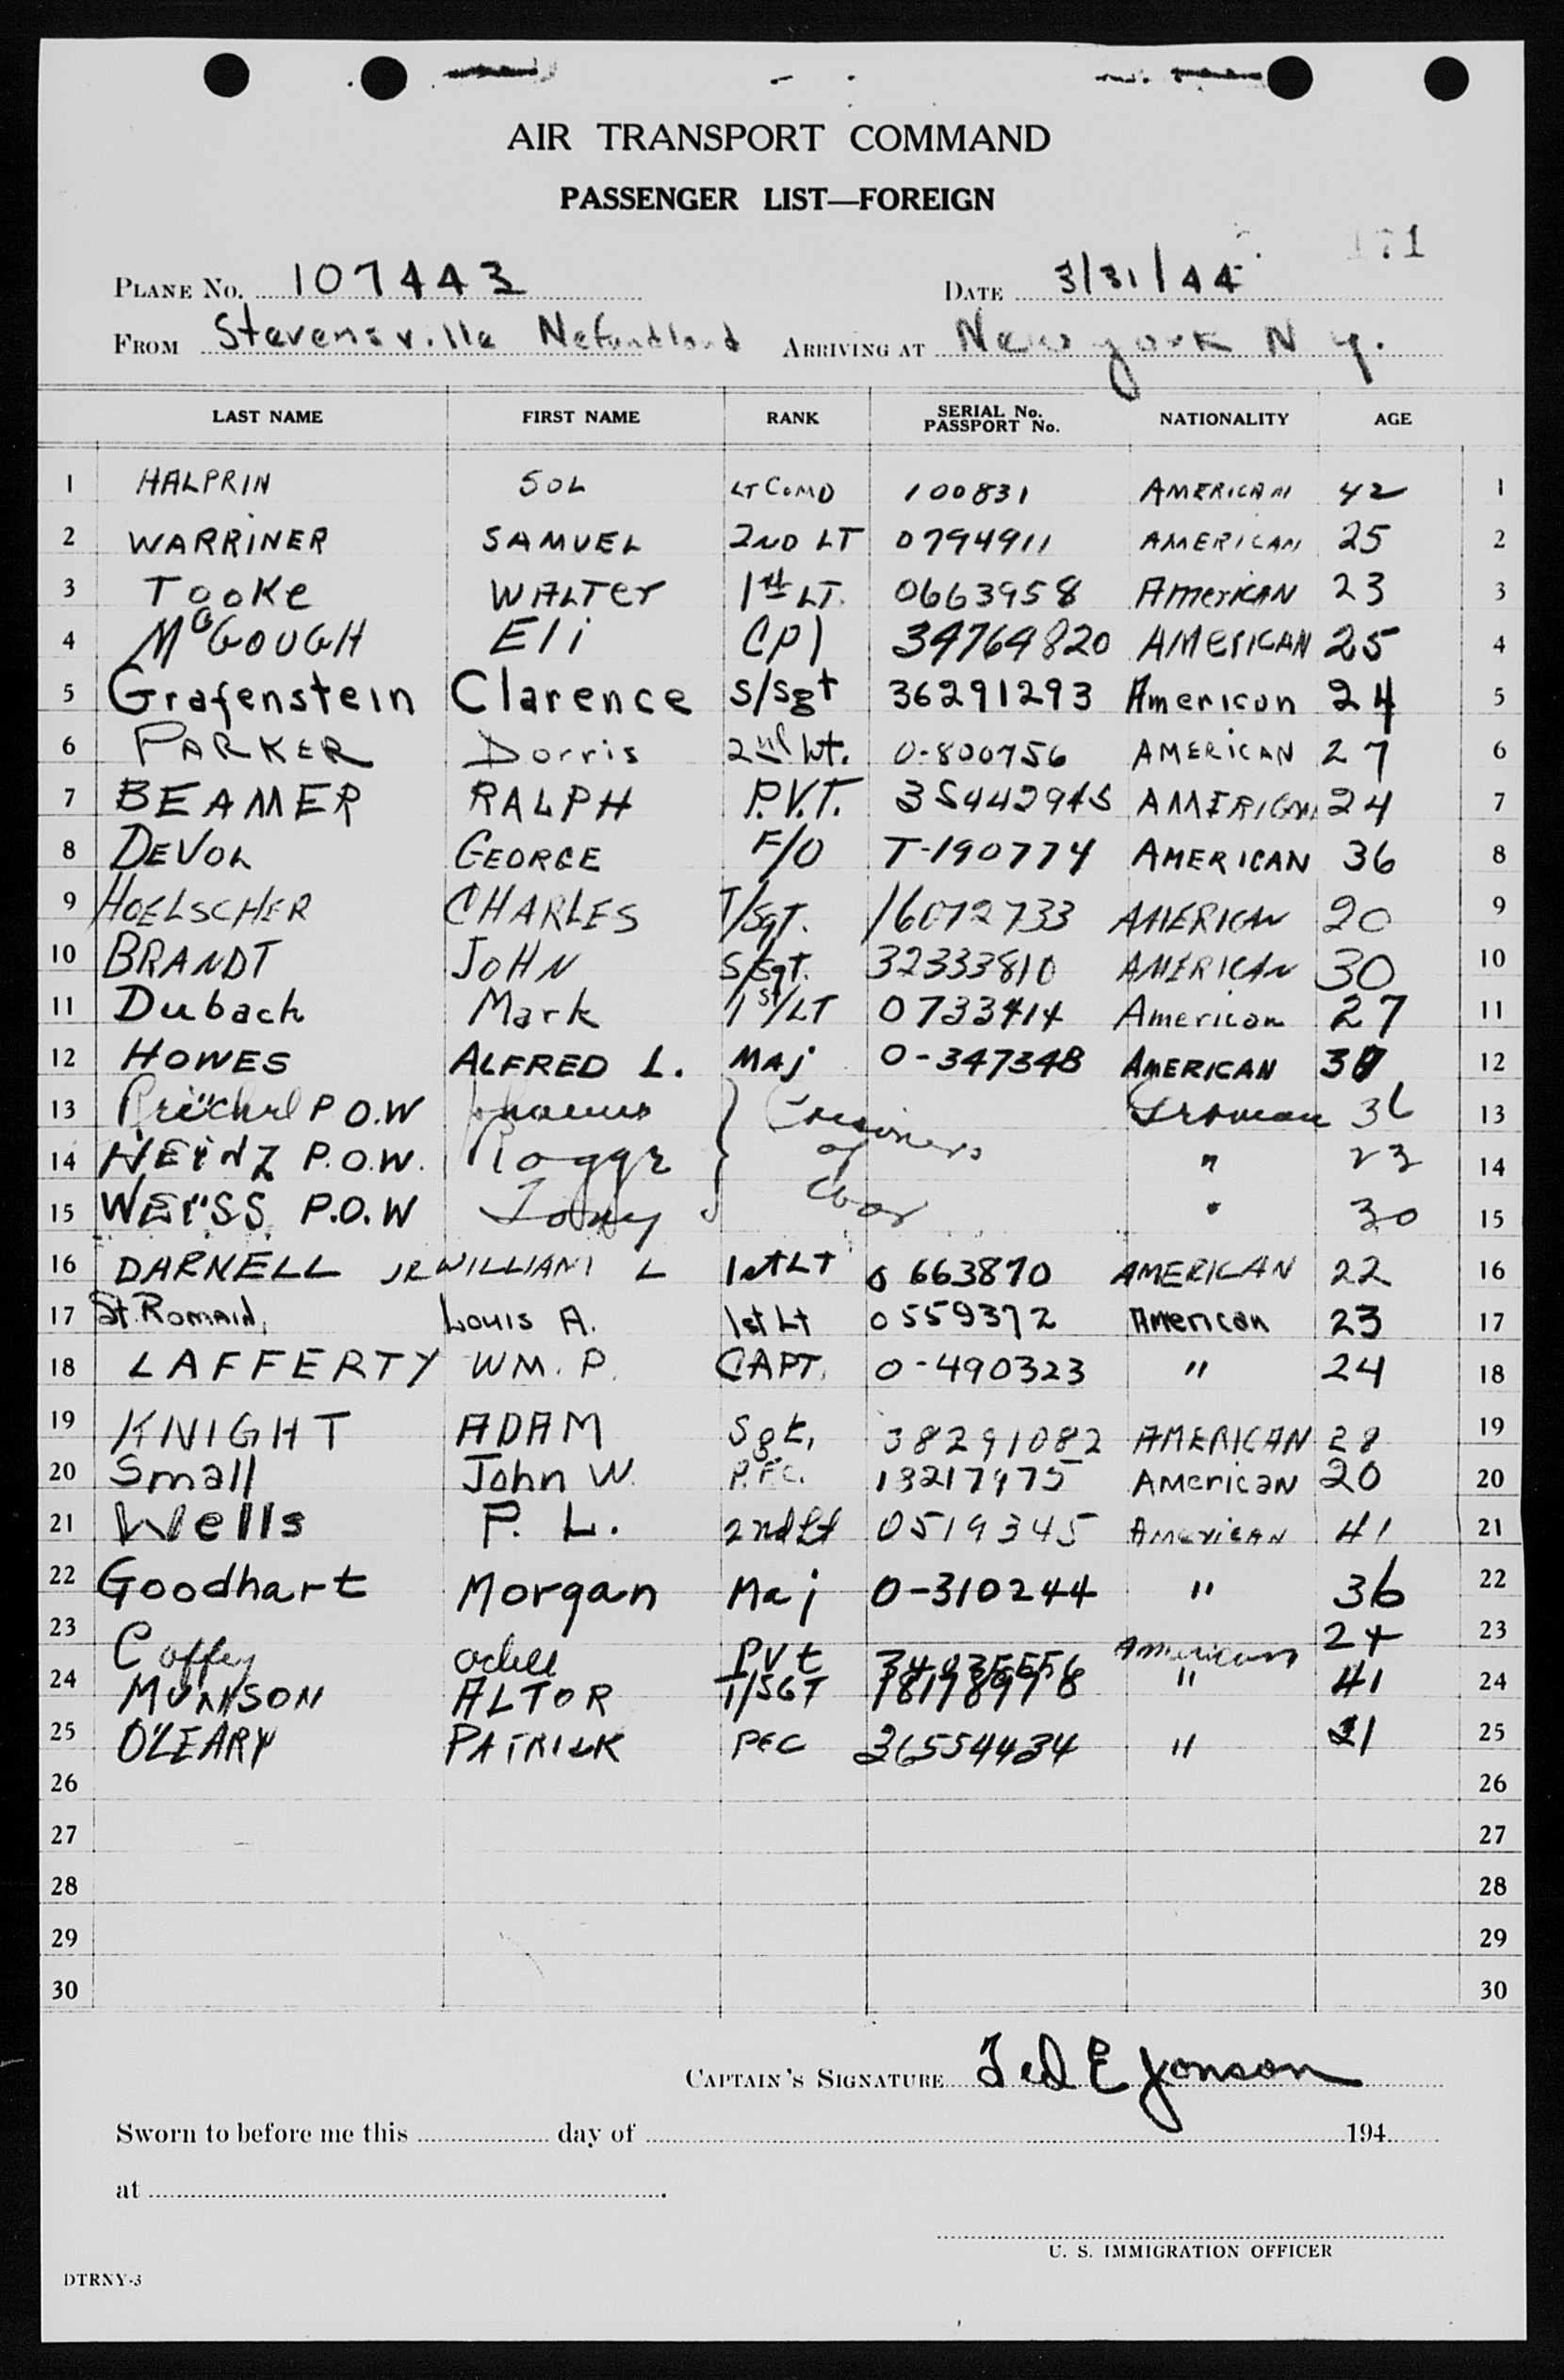 AIR TRANSPORT COMMAND
PASSENGER LIST—FOREIGN
171
PLANE No. 107443 DATE 3/31/44
FROM Stevensville Nefundland ARRIVING AT New york N y.
LAST NAME FIRST NAME RANK SERIAL No. PASSPORT No. NATIONALITY AGE
1 HALPRIN SOL LT COMD 100831 AMERICAN 42 1
2 WARRINER SAMUEL 2ND LT 0794911 AMERICAN 25 2
3 Tooke WALTer 1st LT. 0663958 AmerICAN 23 3
4 McGOUGH Eli Cpl 34764820 AMerICAN 25 4
5 Grafenstein Clarence S/Sgt 36291293 American 24 5
6 PARKER Dorris 2nd Lt. 0-800756 AMERICAN 27 6
7 BEAMER RALPH P.V.T. 35442945 AMERICAN 24 7
8 DEVOL GEORGE F/O T-190774 AMERICAN 36 8
9 HOELSCHER CHARLES T/SgT. 16072733 AMERICAN 20 9
10 BRANDT JOHN S/SgT. 32333810 AMERICAN 30 10
11 Dubach Mark 1st/LT 0733414 American 27 11
12 HOWES ALFRED L. MAj 0-347348 AMERICAN 12
13 P.O.W Prisoners German 36 13
14 HEINZ P.O.W. of " 23 14
15 WEISS P.O.W Tony War " 30 15
16 DARNELL JR WILLIAM L 1st LT 0 663870 AMERICAN 22 16
17 St. Romain, Louis A. 1st Lt 0559372 American 23 17
18 LAFFERTY WM. P. CAPT. 0-490323 " 24 18
19 KNIGHT ADAM Sgt. 38291082 AMERICAN 28 19
20 Small John W. P.F.C. 13217975 American 20 20
21 Wells P. L. 2nd Lt 0519345 American 41 21
22 Goodhart Morgan Maj 0-310244 " 36 22
23 Coffey odell Pvt American 24 23
24 MUNSON ALTOR T/SGT 18198978 " 41 24
25 O'LEARY PATRICK PFC 36554434 " 21 25
26 26
27 27
28 28
29 29
30 30
CAPTAIN'S SIGNATURE Ted E Jonson
Sworn to before me this day of 194
at .
U. S. IMMIGRATION OFFICER
DTRNY-3